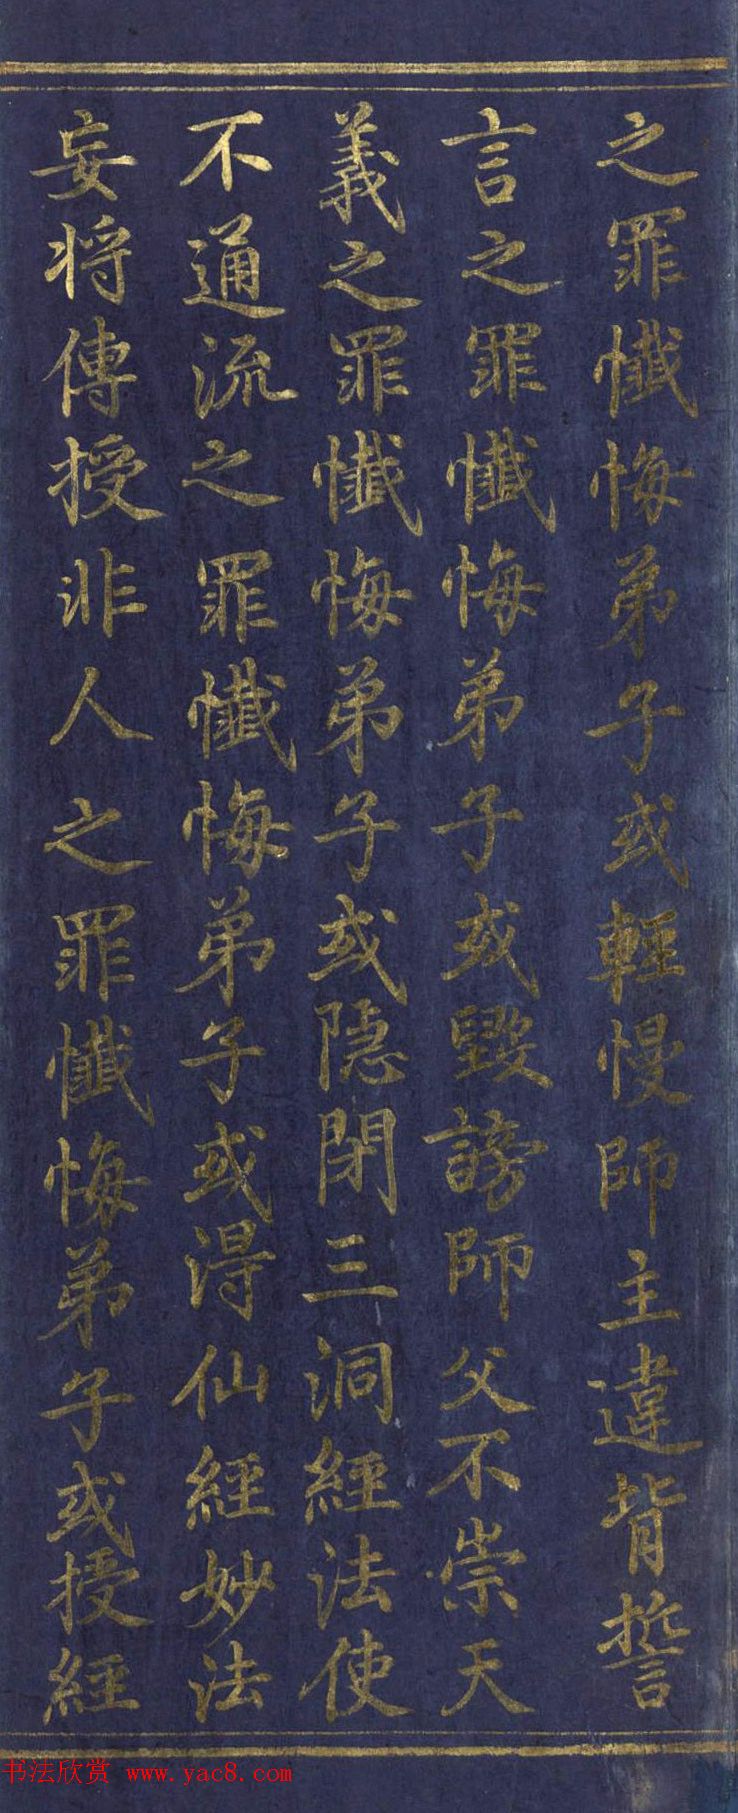 之罪懺悔弟子或輕慢師主違背誓
言之罪懺悔弟子或毀謗師父不崇天
義之罪懺悔弟子或隱閉三洞經法使
不通流之罪懺悔弟子或得仙經妙法
妄將傳授非人之罪懺悔弟子或授經
书法欣赏 www.yac8.com